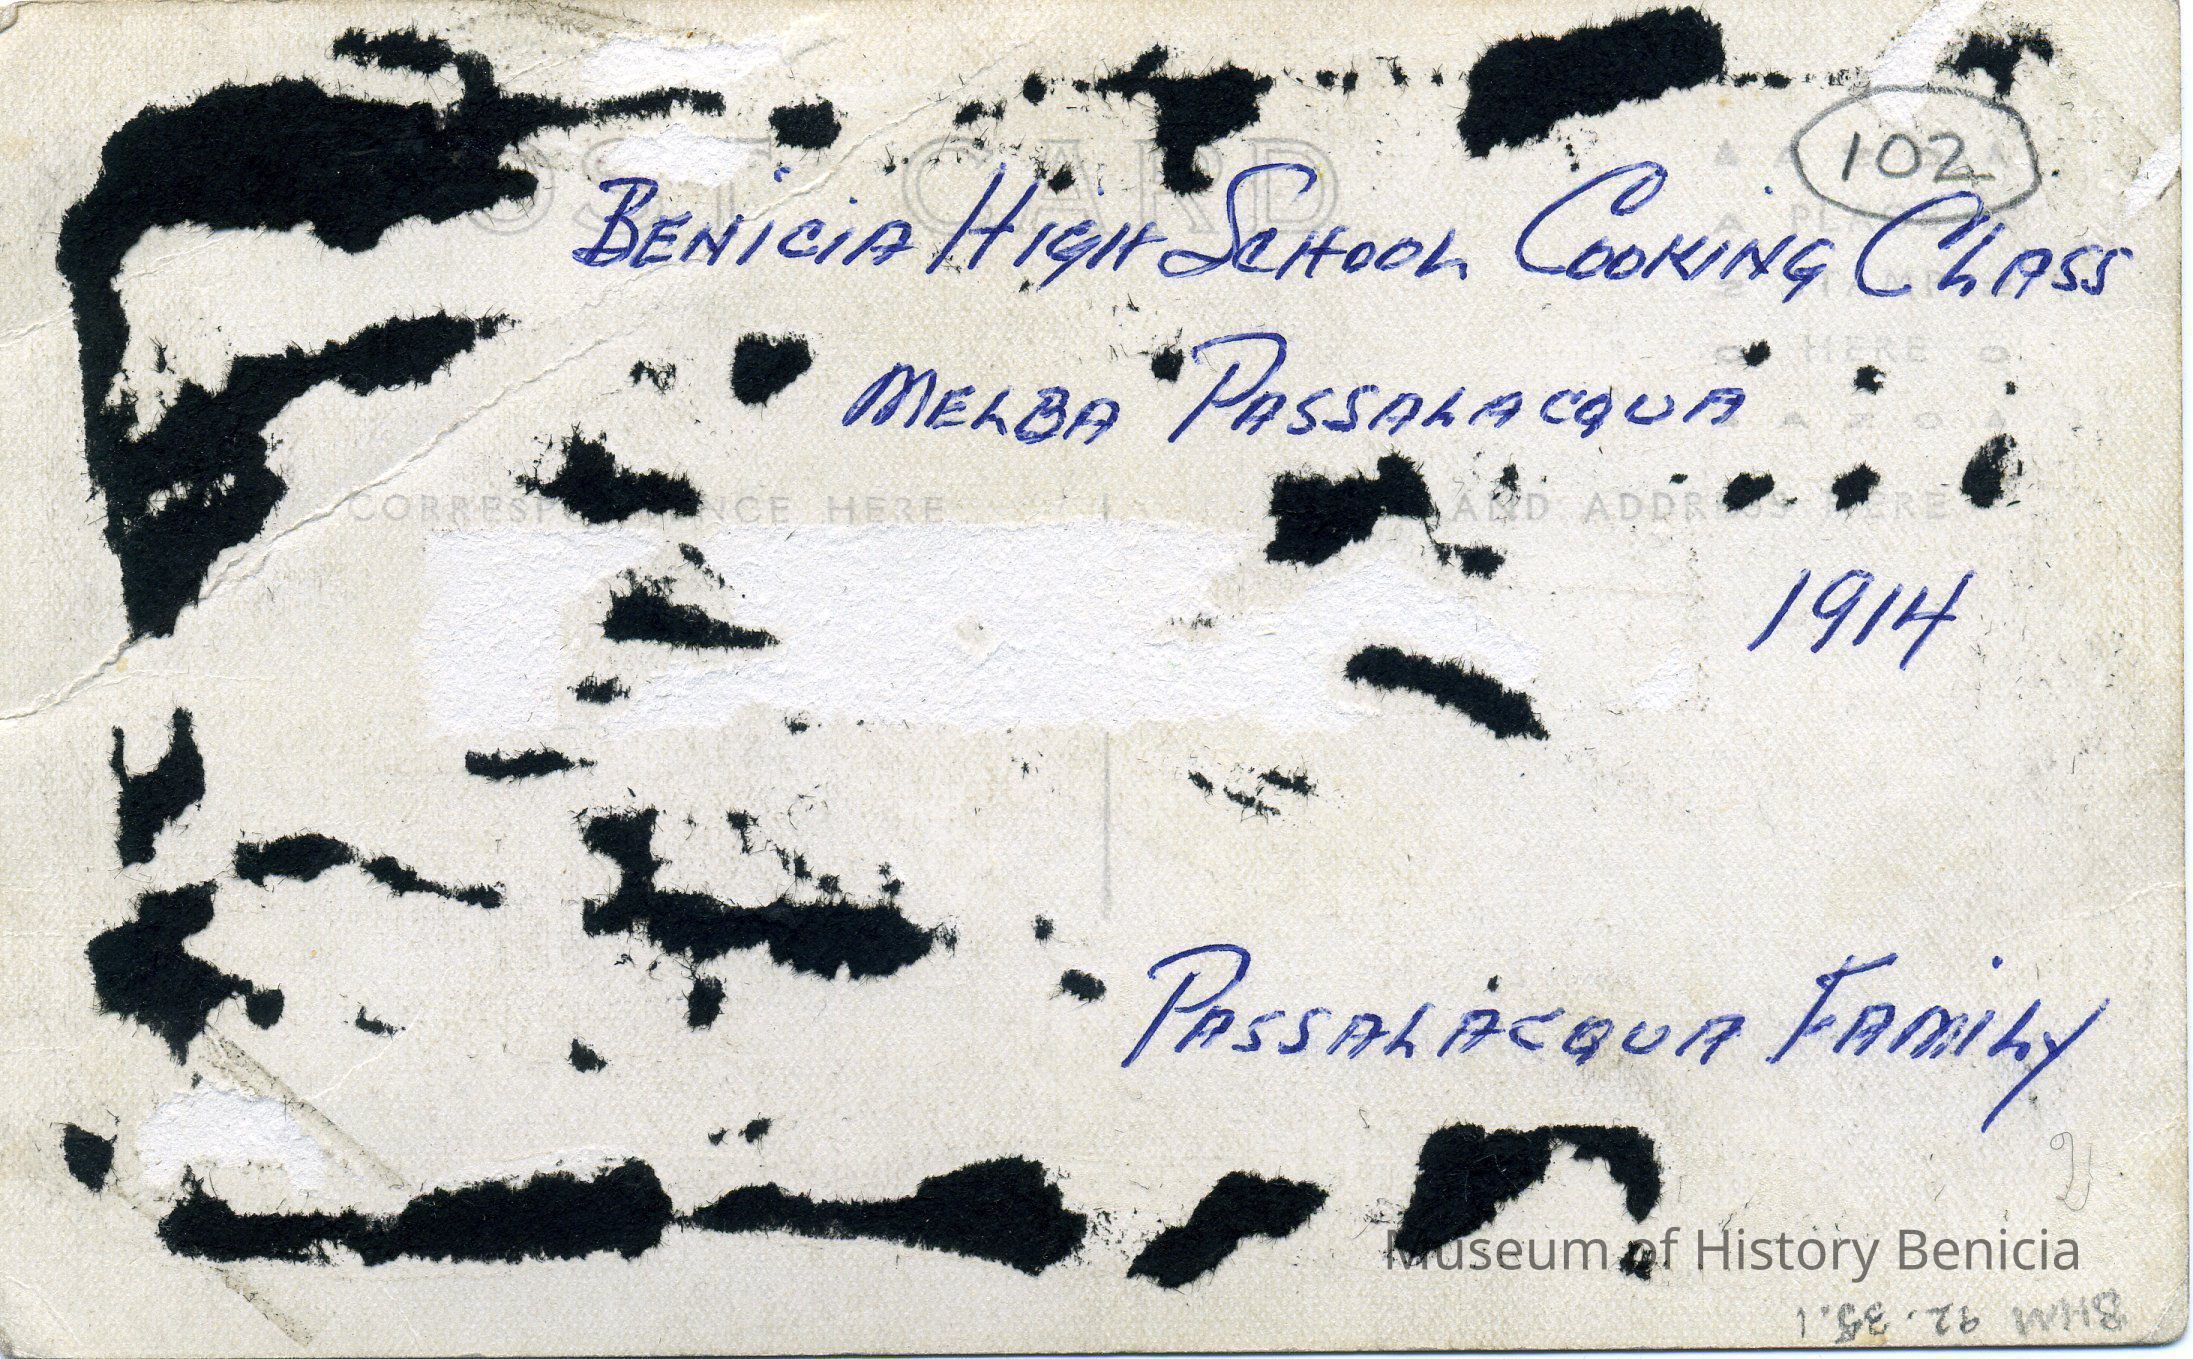 OST CARD
102
BENICIA HIGH SCHOOL COOKING CLASS
HERE
MELBA PASSALACQUA
CORRESP NCE HERE
AND ADDRESS HERE
1914
PASSALACQUA FAMILY
Museum of History Benicia
BHM 92.35.1